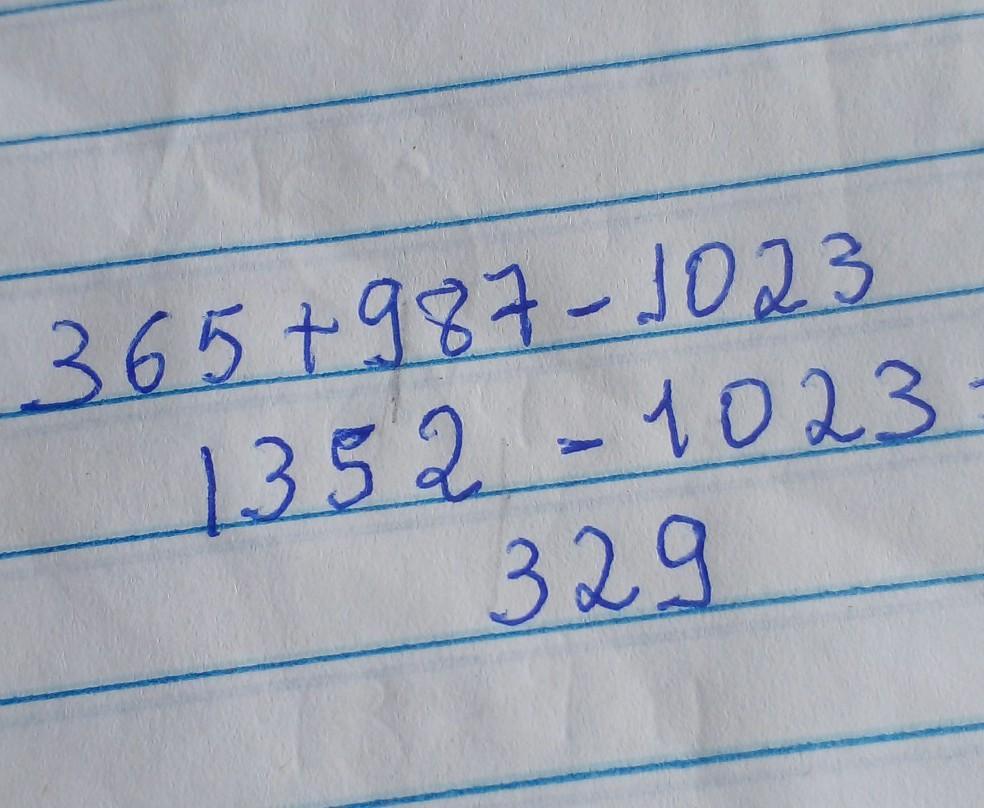 365+987-1023
1352-1023=
329